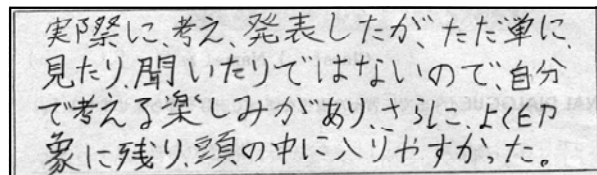 実際に、考え、発表したが、ただ単に、
見たり、聞いたりではないので、自分
で考える楽しみがあり、さらに、よく印
象に残り、頭の中に入りやすかった。